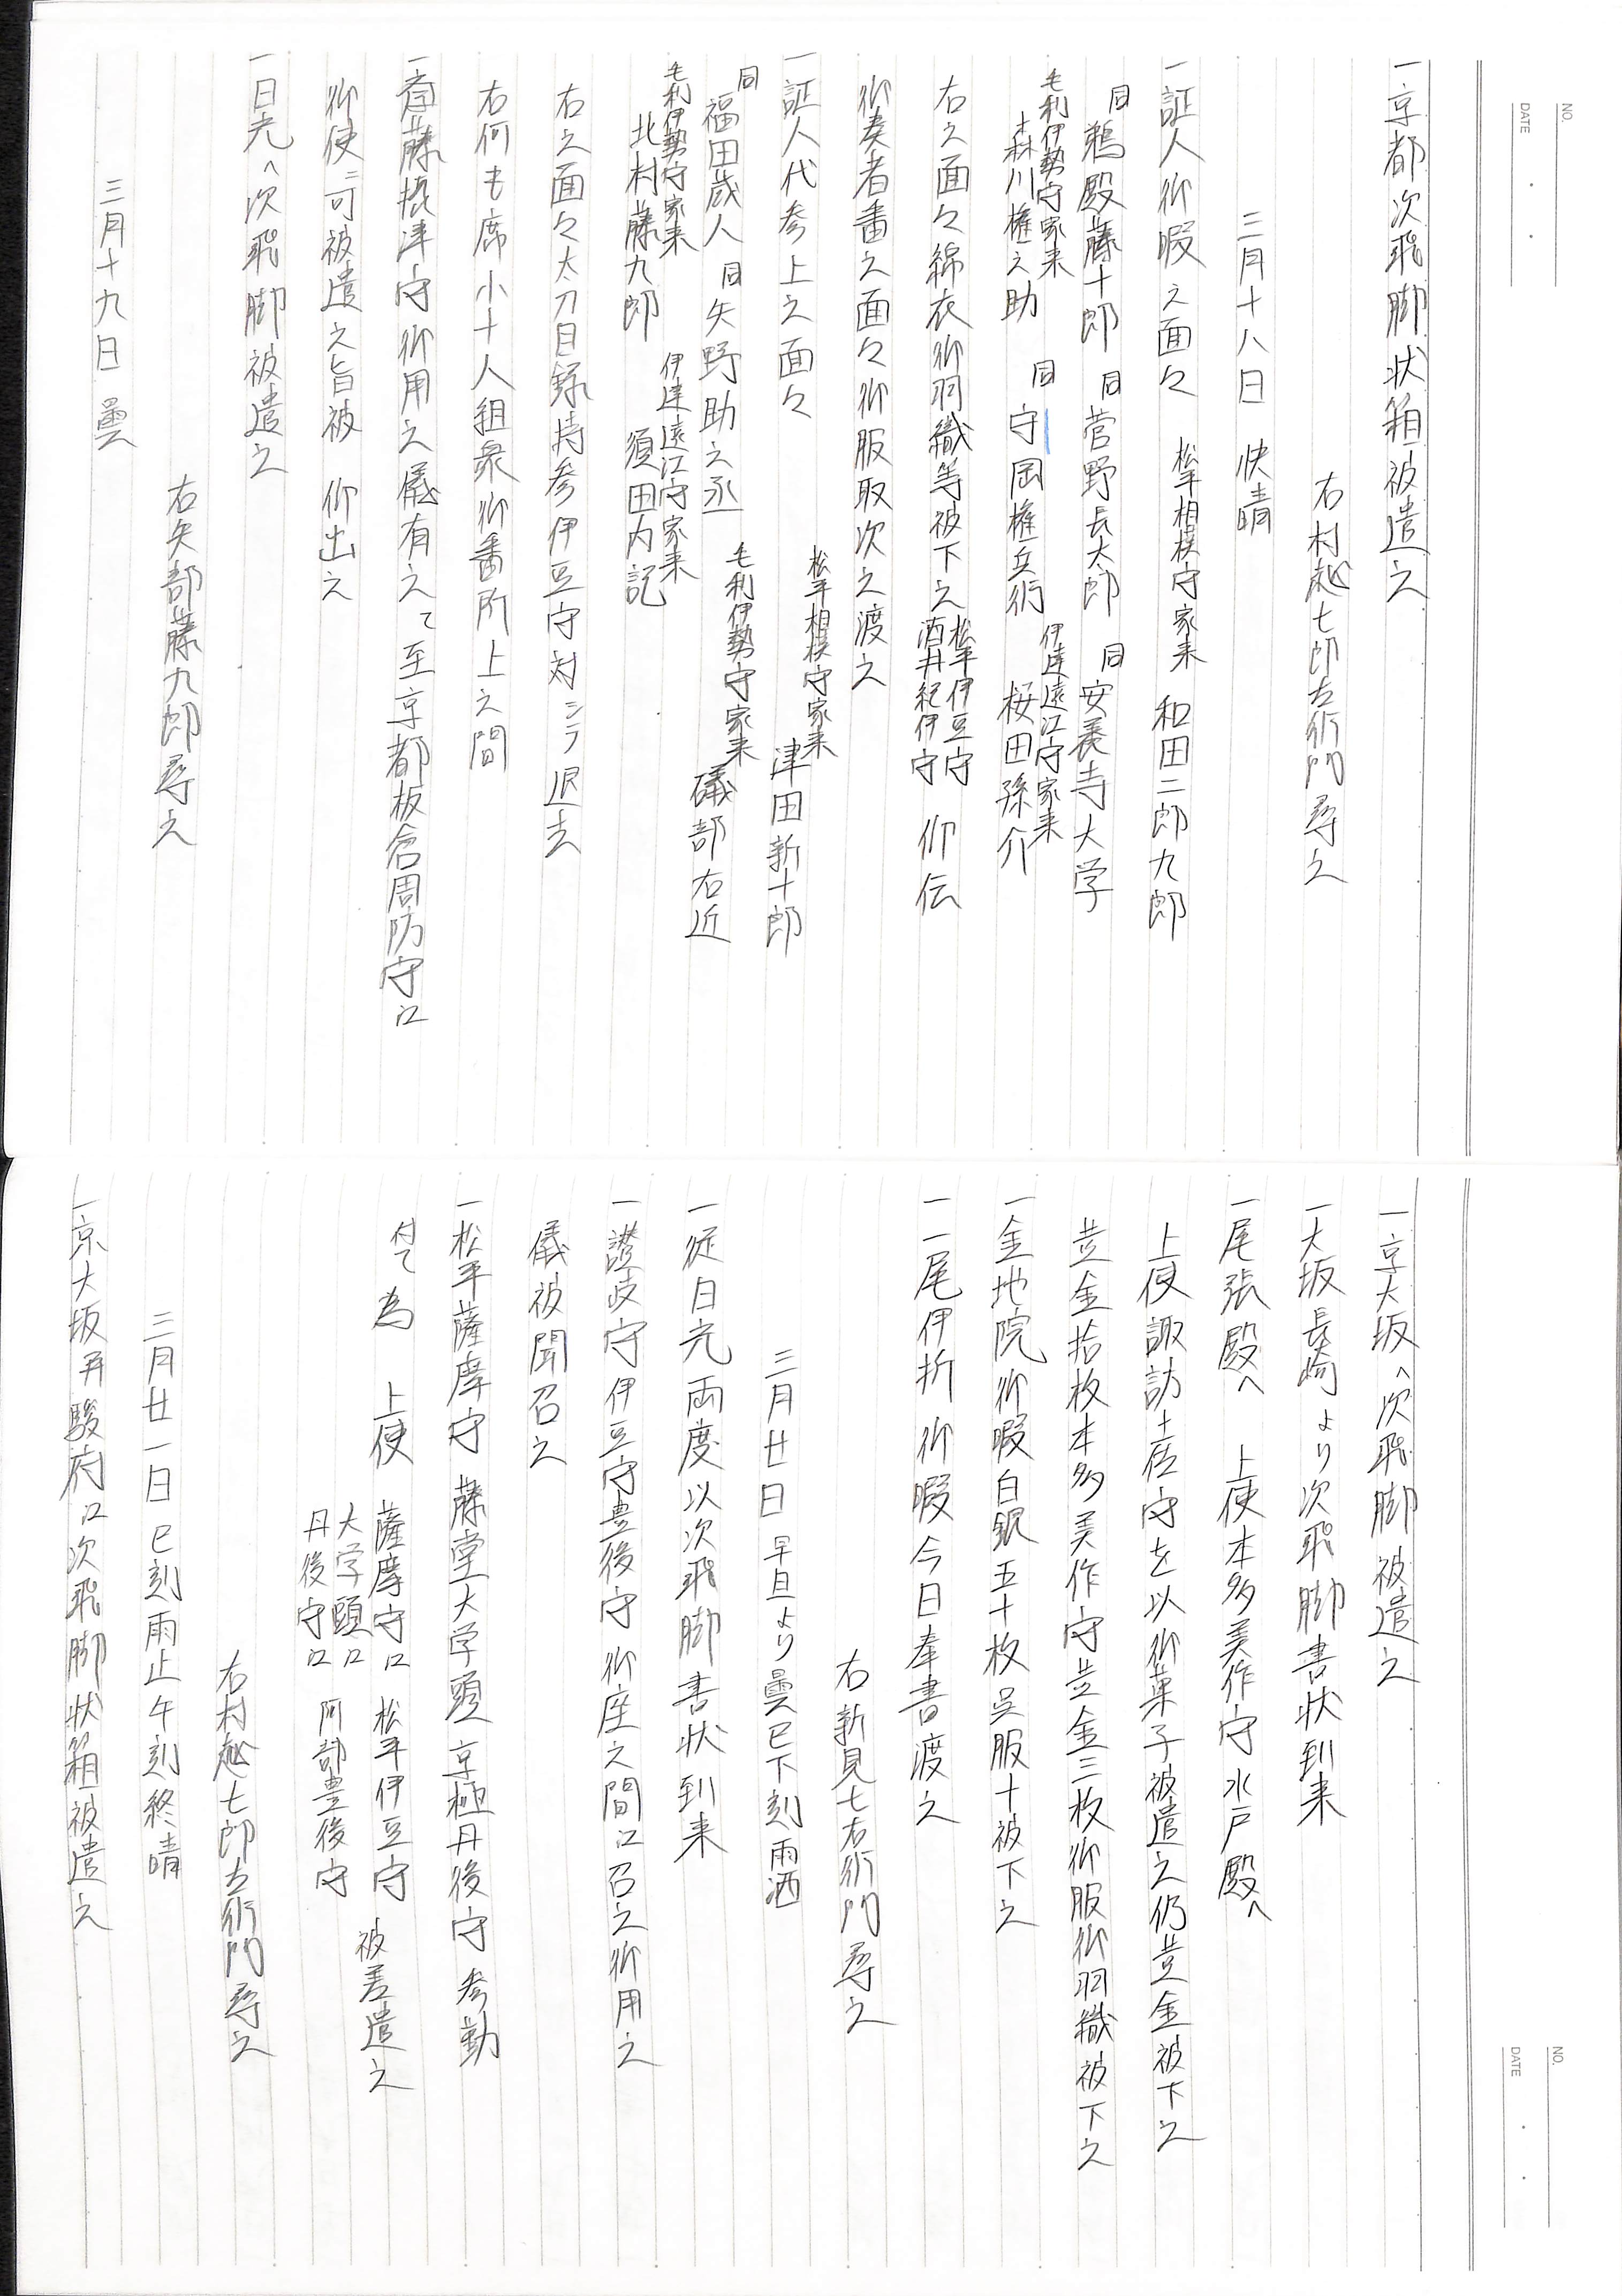 NO.
DATE
一京都次飛脚状箱被遣之
右村越七郎左衛門尋之
三月十八日 快晴
一証人御暇之面々 松平相模守家来 和田二郎九郎
同 鵜殿藤十郎 同 菅野長太郎 同 安養寺大学
毛利伊勢守家来 森川権之助 同 守岡権兵衛 伊達遠江守家来 桜田孫介
右之面々綿衣御羽織等被下之 松平伊豆守 酒井紀伊守 仰伝
御奏者番之面々御服取次之渡之
一証人代参上之面々 松平相模守家来 津田新十郎
同 福田蔵人 同 矢野助之丞 毛利伊勢守家来 礒部右近
毛利伊勢守家来 北村藤九郎 伊達遠江守家来 須田内記
右之面々太刀目録持参伊豆守対シテ退去
右何も席小十人組衆御番所上之間
一斎藤摂津守御用之儀有之て至京都板倉周防守江
御使ニ可被遣之旨被 仰出之
一日光へ次飛脚被遣之
右矢部藤九郎尋之
三月十九日 曇
NO.
DATE
一京大坂へ次飛脚被遣之
一大坂長崎より次飛脚書状到来
一尾張殿へ 上使本多美作守水戸殿へ
上使諏訪土佐守を以御菓子被遣之仍昔金被下之
昔金拾枚本多美作守昔金三枚御服御羽織被下之
一金地院御暇白銀五十枚呉服十被下之
一一尾伊折御暇今日奉書渡之
右新見七右衛門尋之
三月廿日 早旦より曇巳下刻雨洒
一従日光両度以次飛脚書状到来
一讃岐守伊豆守豊後守御座之間江召之御用之
儀被聞召之
一松平薩摩守 藤堂大学頭 京極丹後守 参勤
付て為 上使 薩摩守江 松平伊豆守 被差遣之
大学頭江
丹後守江 阿部豊後守
右村越七郎左衛門尋之
三月廿一日 巳刻雨止午刻終晴
一京大坂并駿府江次飛脚状箱被遣之